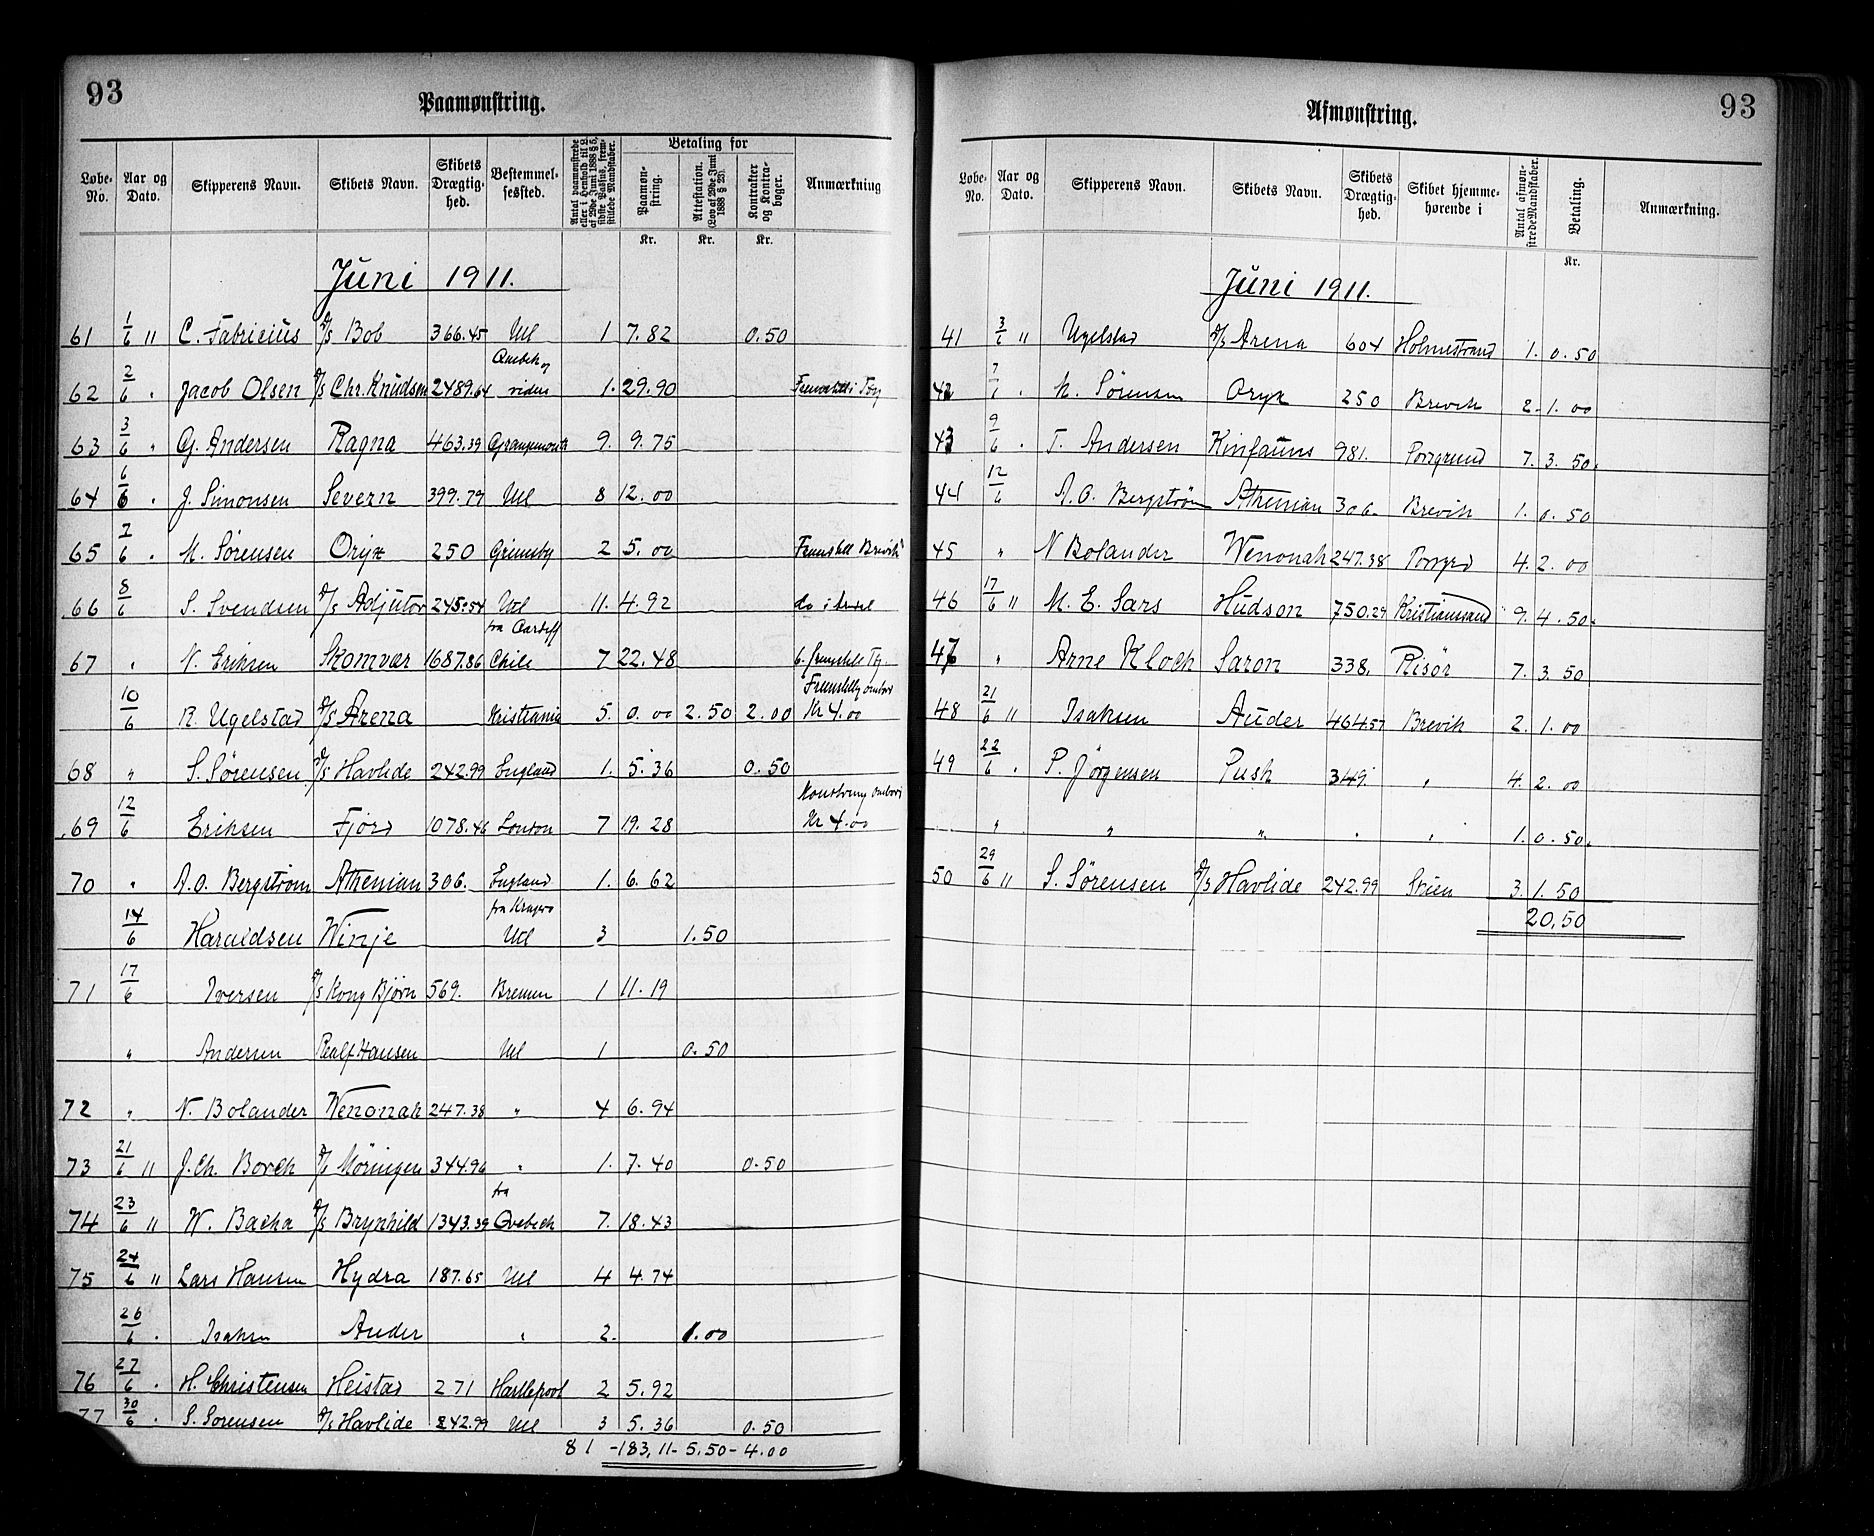 93
Paamønstring.
Løbe-No. Aar og Dato. Skipperens Navn. Skibets Navn. Skibets Drægtighed. Bestemmelsessted. Betaling for Anmærkning
Paamønstring. Attestation. (Lov af 29de Juni 1888 § 23). Kontrakter og Kontrabøger.
Kr. Kr. Kr.
Juni 1911.
61 1/6 " C. Fabricius D/S Bob 366.45 Utl 1 7.82 0.50
62 2/6 " Jacob Olsen D/S Chr. Knudsen 2489.64 Quebek og videre 1. 29.90
63 3/6 " G. Andersen Ragna 463.39 Grangemouth 9. 9.75
64 6/6 " J. Simonsen Severn 399.79 Utl 8 12.00
65 7/6 " M. Sørensen Oryx 250 Grimsby 2 5.00 Fremstill Brevik
66 8/6 S. Svendsen D/S Adjutor 245.54 Utl 11. 4.92
fra Cardiff
67 " N. Eriksen Skomvær 1687.86 Chile 7 22.48
10/6 R. Ugelstad D/S Arena Kristiania 5. 0.00 2.50 2.00 Kr 4.00
68 " S. Sørensen D/S Havlide 242.99 England 1. 5.36 0.50
Mønstring ombord
69 12/6 Eriksen Fjord 1078.46 London 7 19.28 Kr 4.00
70 " A.O. Bergstrøm Athenian 306. England 1. 6.62
fra Kragerø
14/6 Haraldsen Winje Utl 3 1.50
71 17/6 Iversen D/S Kong Bjørn 569. Bremen 1 11.19
" Andersen Ralf Hansen Utl 1 0.50
72 " N. Bolander Wenonah 247.38 " 4 6.94
73 21/6 " J. Ch. Borch D/S Møringen 344.96 " 1. 7.40 0.50
fra
74 23/6 " W. Bacha D/S Brynhild 1343.39 Qvebeck 7. 18.43
75 24/6 " Lars Hansen Hydra 187.65 Utl 4 4.74
26/6 " Isaksen Auder " 2. 1.00
76 27/6 " H. Christensen Heistad 271 Hartlepool 2 5.92
77 30/6 " S. Sørensen D/S Havlide 242.99 Utl 3 5.36 0.50
81 -183,11- 5,50- 4.00
93
Afmønstring.
Løbe-No. Aar og Dato. Skipperens Navn. Skibets Navn. Skibets Drægtighed. Skibet hjemmehørende i Antal afmønstrede Mandstaber. Betaling. Anmærkning.
Kr.
Juni 1911.
41 3/6 " Ugelstad D/S Arena 604 Holmestrand 1. 0.50
42 7/6 " M. Sørensen Oryx 250 Brevik 2. 1.00
43 9/6 " T. Andersen Kinfauns 981. Porsgrund 7. 3.50
44 12/6 A.O. Bergstrøm Athenian 306. Brevik 1. 0.50
45 " N Bolander Wenonah 247.38 Porsgrd 4. 2.00
46 17/6 " M. E. Sars Hudson 750.29 Kristiansand 9. 4.50
47 " Arne Kloch Saron 338. Risør 7. 3.50
48 21/6 " Isaksen Auder 464.57 Brevik 2. 1.00
49 22/6 " P. Jørgensen Pusk 349 " 4. 2.00
" " " " " 1. 0.50
50 29/6 " S. Sørensen D/S Havlide 242.99 Skien 3. 1.50
20,50